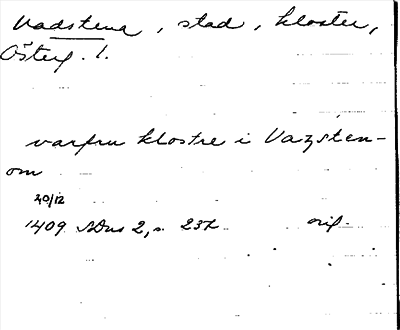 Vadstena, stad, kloster,
Österg. l.
varfru klostre i Vazsten-
om
20/12
1409 SDns 2, s. 232 orig.